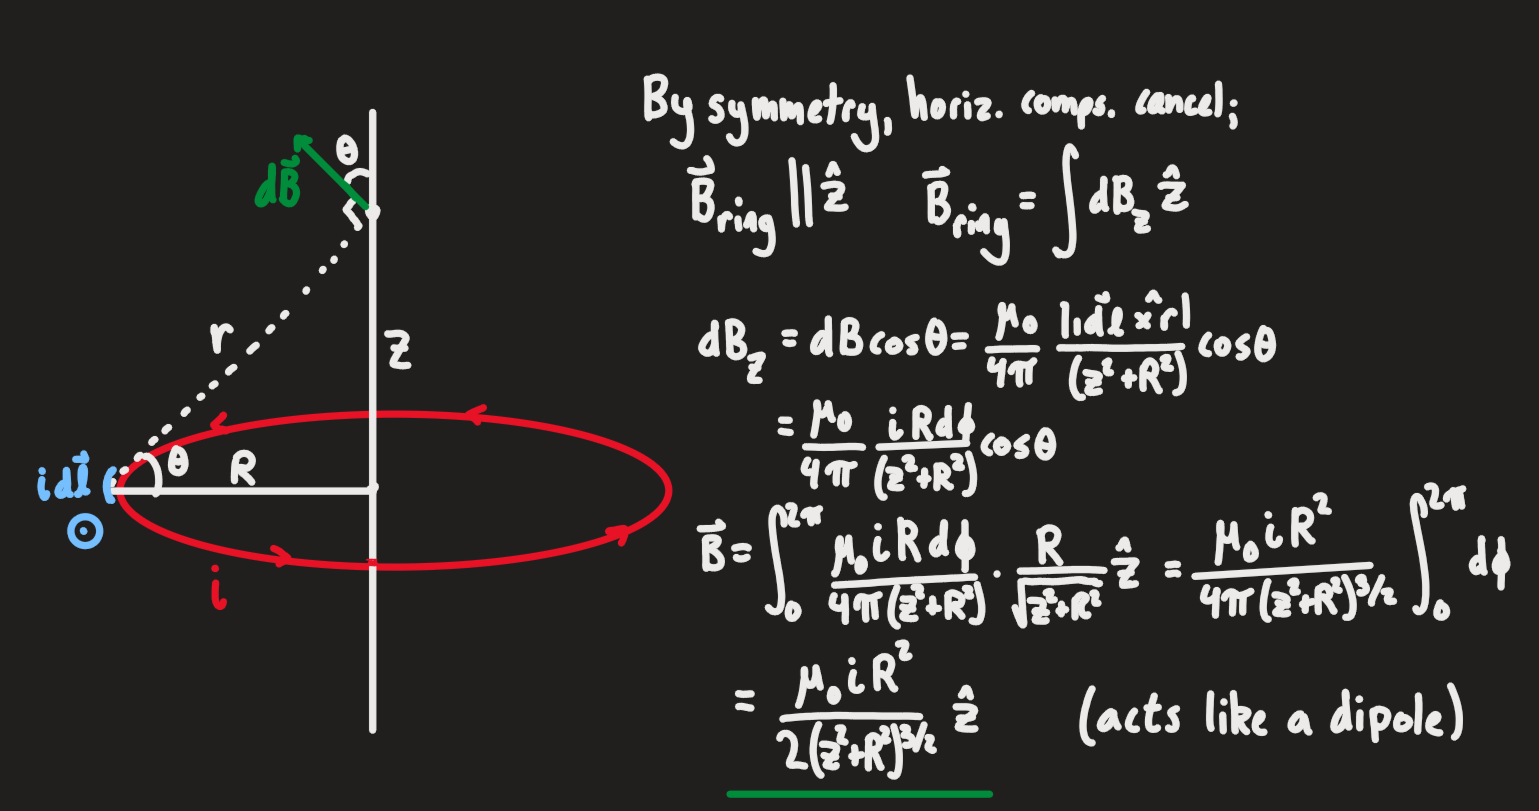 By symmetry, horiz. comps. cancel;
B⃗_ring || ẑ    B⃗_ring = ∫ dB_z ẑ
dB_z = dB cosθ = μ₀/4π |idl⃗ × r̂|/(z²+R²) cosθ
= μ₀/4π iRdϕ/(z²+R²) cosθ
B⃗ = ∫₀^2π μ₀iRdϕ/4π(z²+R²) · R/√(z²+R²) ẑ = μ₀iR²/4π(z²+R²)^3/2 ∫₀^2π dϕ
= μ₀iR²/2(z²+R²)^3/2 ẑ    (acts like a dipole)
θ
dB⃗
r
z
θ
R
idl⃗
i